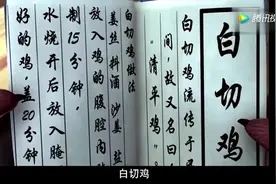 腾讯视
白切鸡
白切鸡流传于
间，故又名曰
“清平鸡”。
白切鸡做法
姜丝料酒沙姜盐
放入鸡的腹腔内
制15分钟，
水烧开后放入腌
好的鸡，盖20分钟，
白切鸡